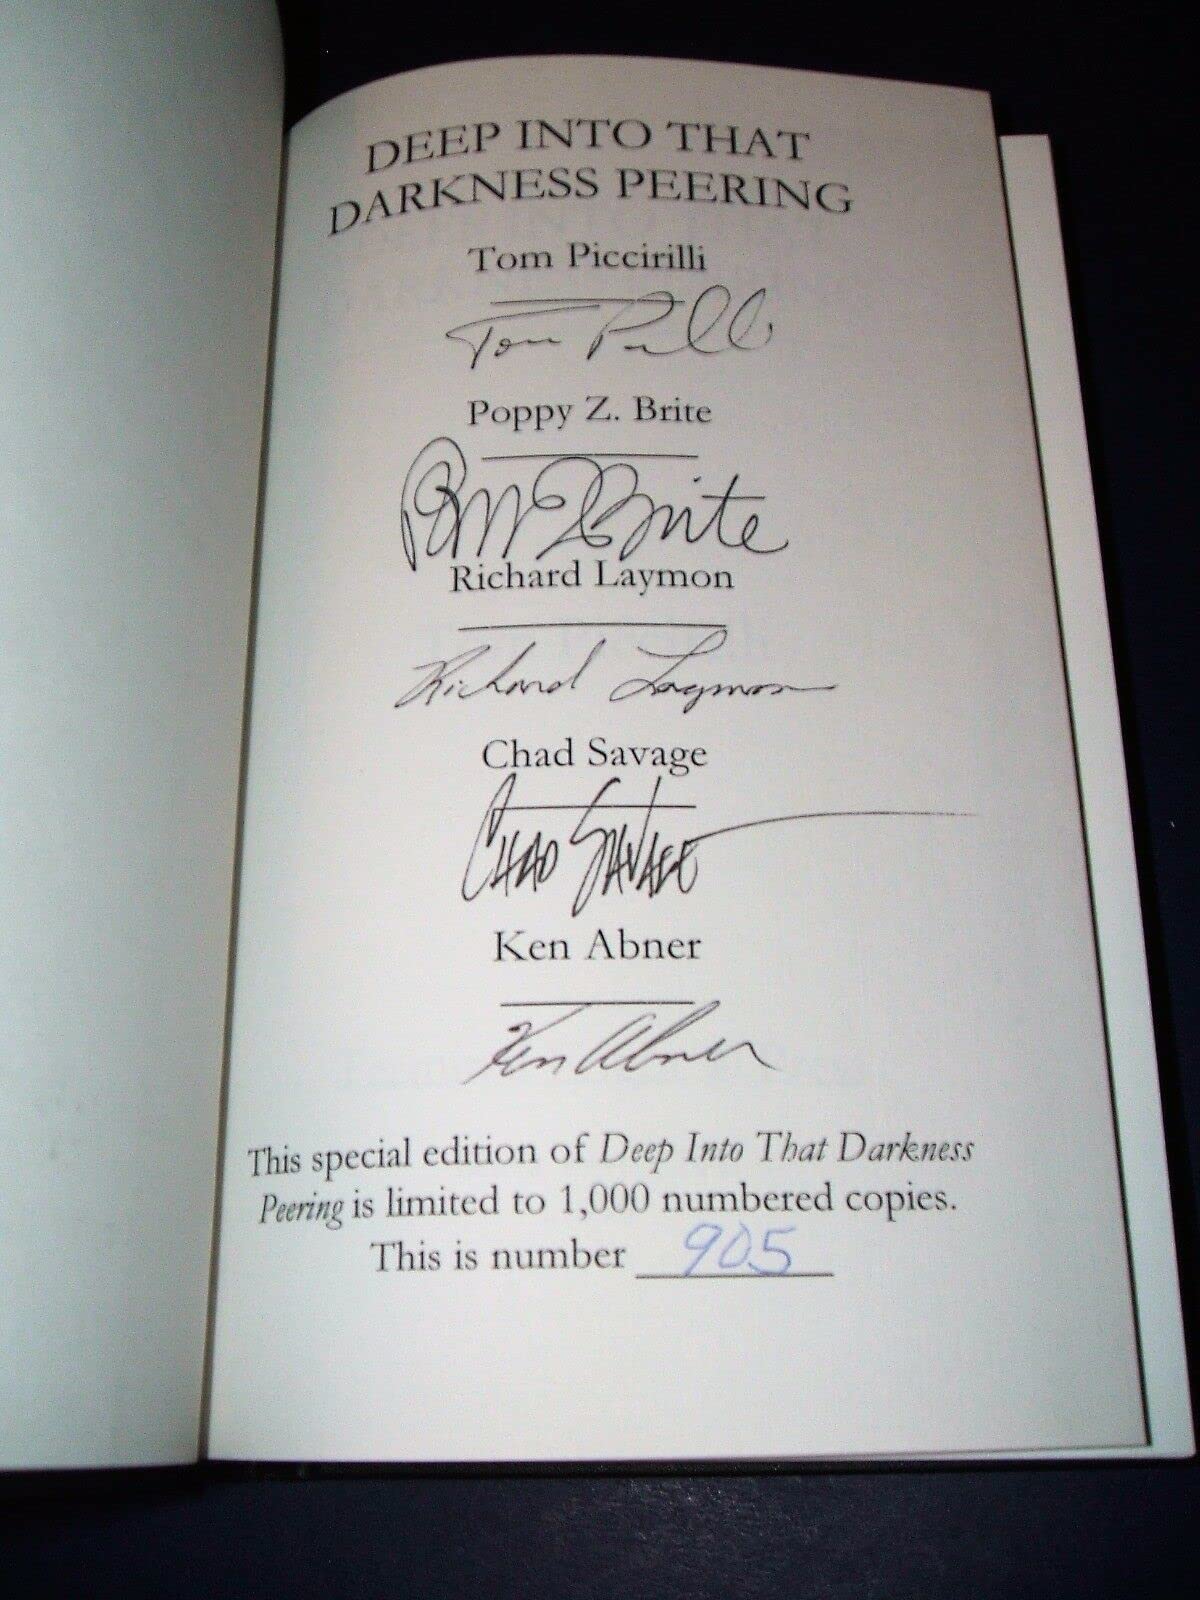 DEEP INTO THAT
DARKNESS PEERING
Tom Piccirilli
Tom Piccirilli
Poppy Z. Brite
Poppy Z Brite
Richard Laymon
Richard Laymon
Chad Savage
CHAD SAVAGE
Ken Abner
Ken Abner
This special edition of Deep Into That Darkness
Peering is limited to 1,000 numbered copies.
This is number 905